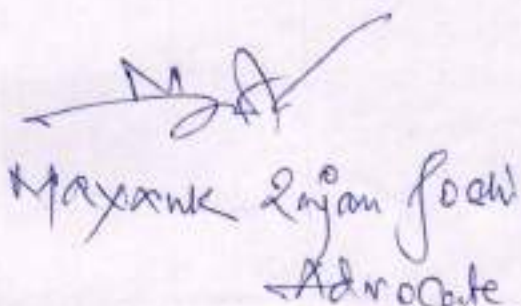 Mayank Rajan Joshi
Advocate